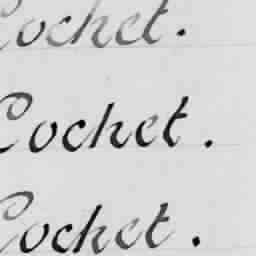 Cochet.
Cochet.
Cochet.